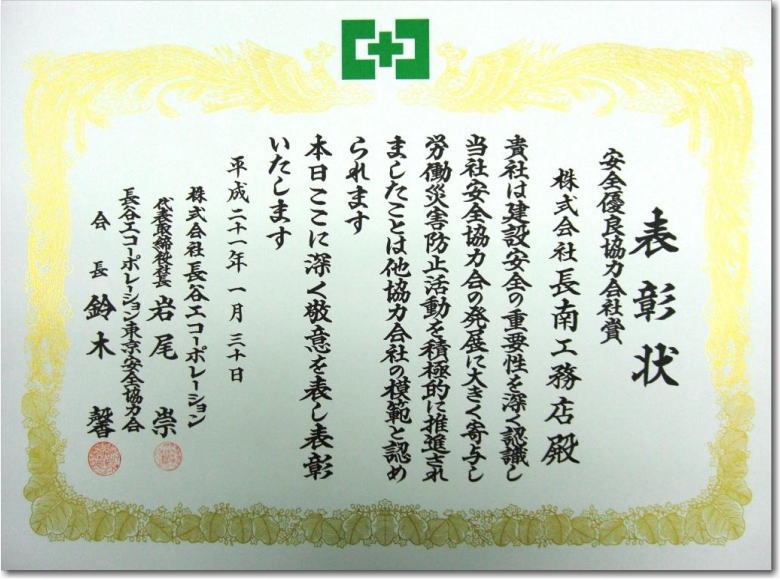 表彰状
安全優良協力会社賞
株式会社長南工務店殿
貴社は建設安全の重要性を深く認識し
当社安全協力会の発展に大きく寄与し
労働災害防止活動を積極的に推進され
ましたことは他協力会社の模範と認め
られます
本日ここに深く敬意を表し表彰
いたします
平成二十一年一月三十日
株式会社長谷工コーポレーション
代表取締役社長 岩尾 崇
長谷工コーポレーション東京安全協力会
会長 鈴木 馨